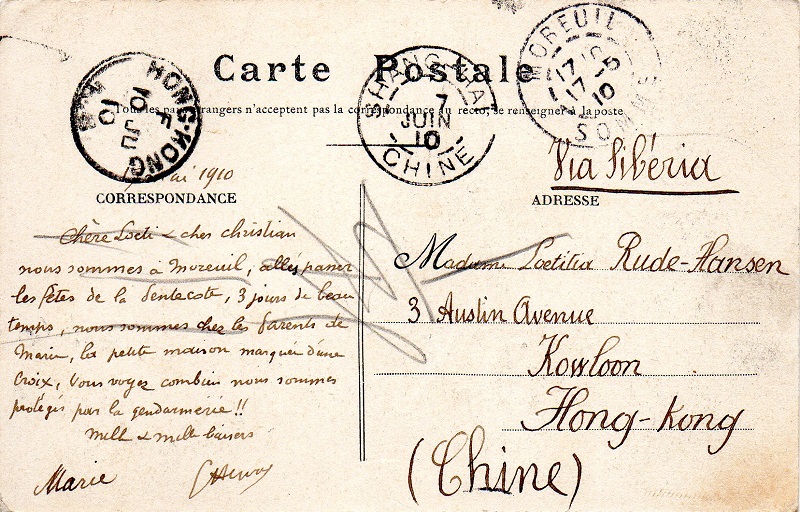 Carte Postale
Tous les pays étrangers n'acceptent pas la correspondance au recto, se renseigner à la poste
HONG-KONG
F
10 JU
10
SHANG-HAI
7
JUIN
10
CHINE
MOREUIL
17
10
SOMME
Mai 1910
CORRESPONDANCE
Chère Loeti & cher Christian
nous sommes à Moreuil, allés passer
les fêtes de la Pentecote, 3 jours de beau
temps, nous sommes chez les parents de
Marie, la petite maison marquée d'une
Croix, Vous voyez combien nous sommes
protégés par la gendarmerie!!
Mille & mille baisers
Marie
Via Sibéria
ADRESSE
Madame Lœtitia Rude-Hansen
3 Austin Avenue
Kowloon
Hong-Kong
(Chine)